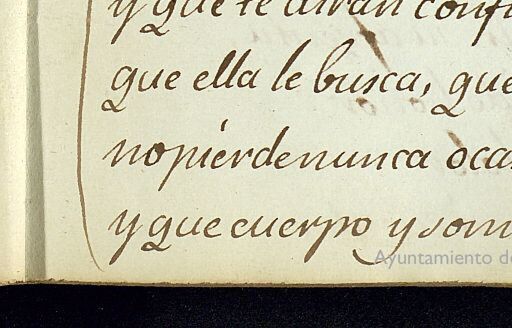 y que te diran conf
que ella le busca, que
no pierde nunca oca
y que cuerpo y som
Ayuntamiento d